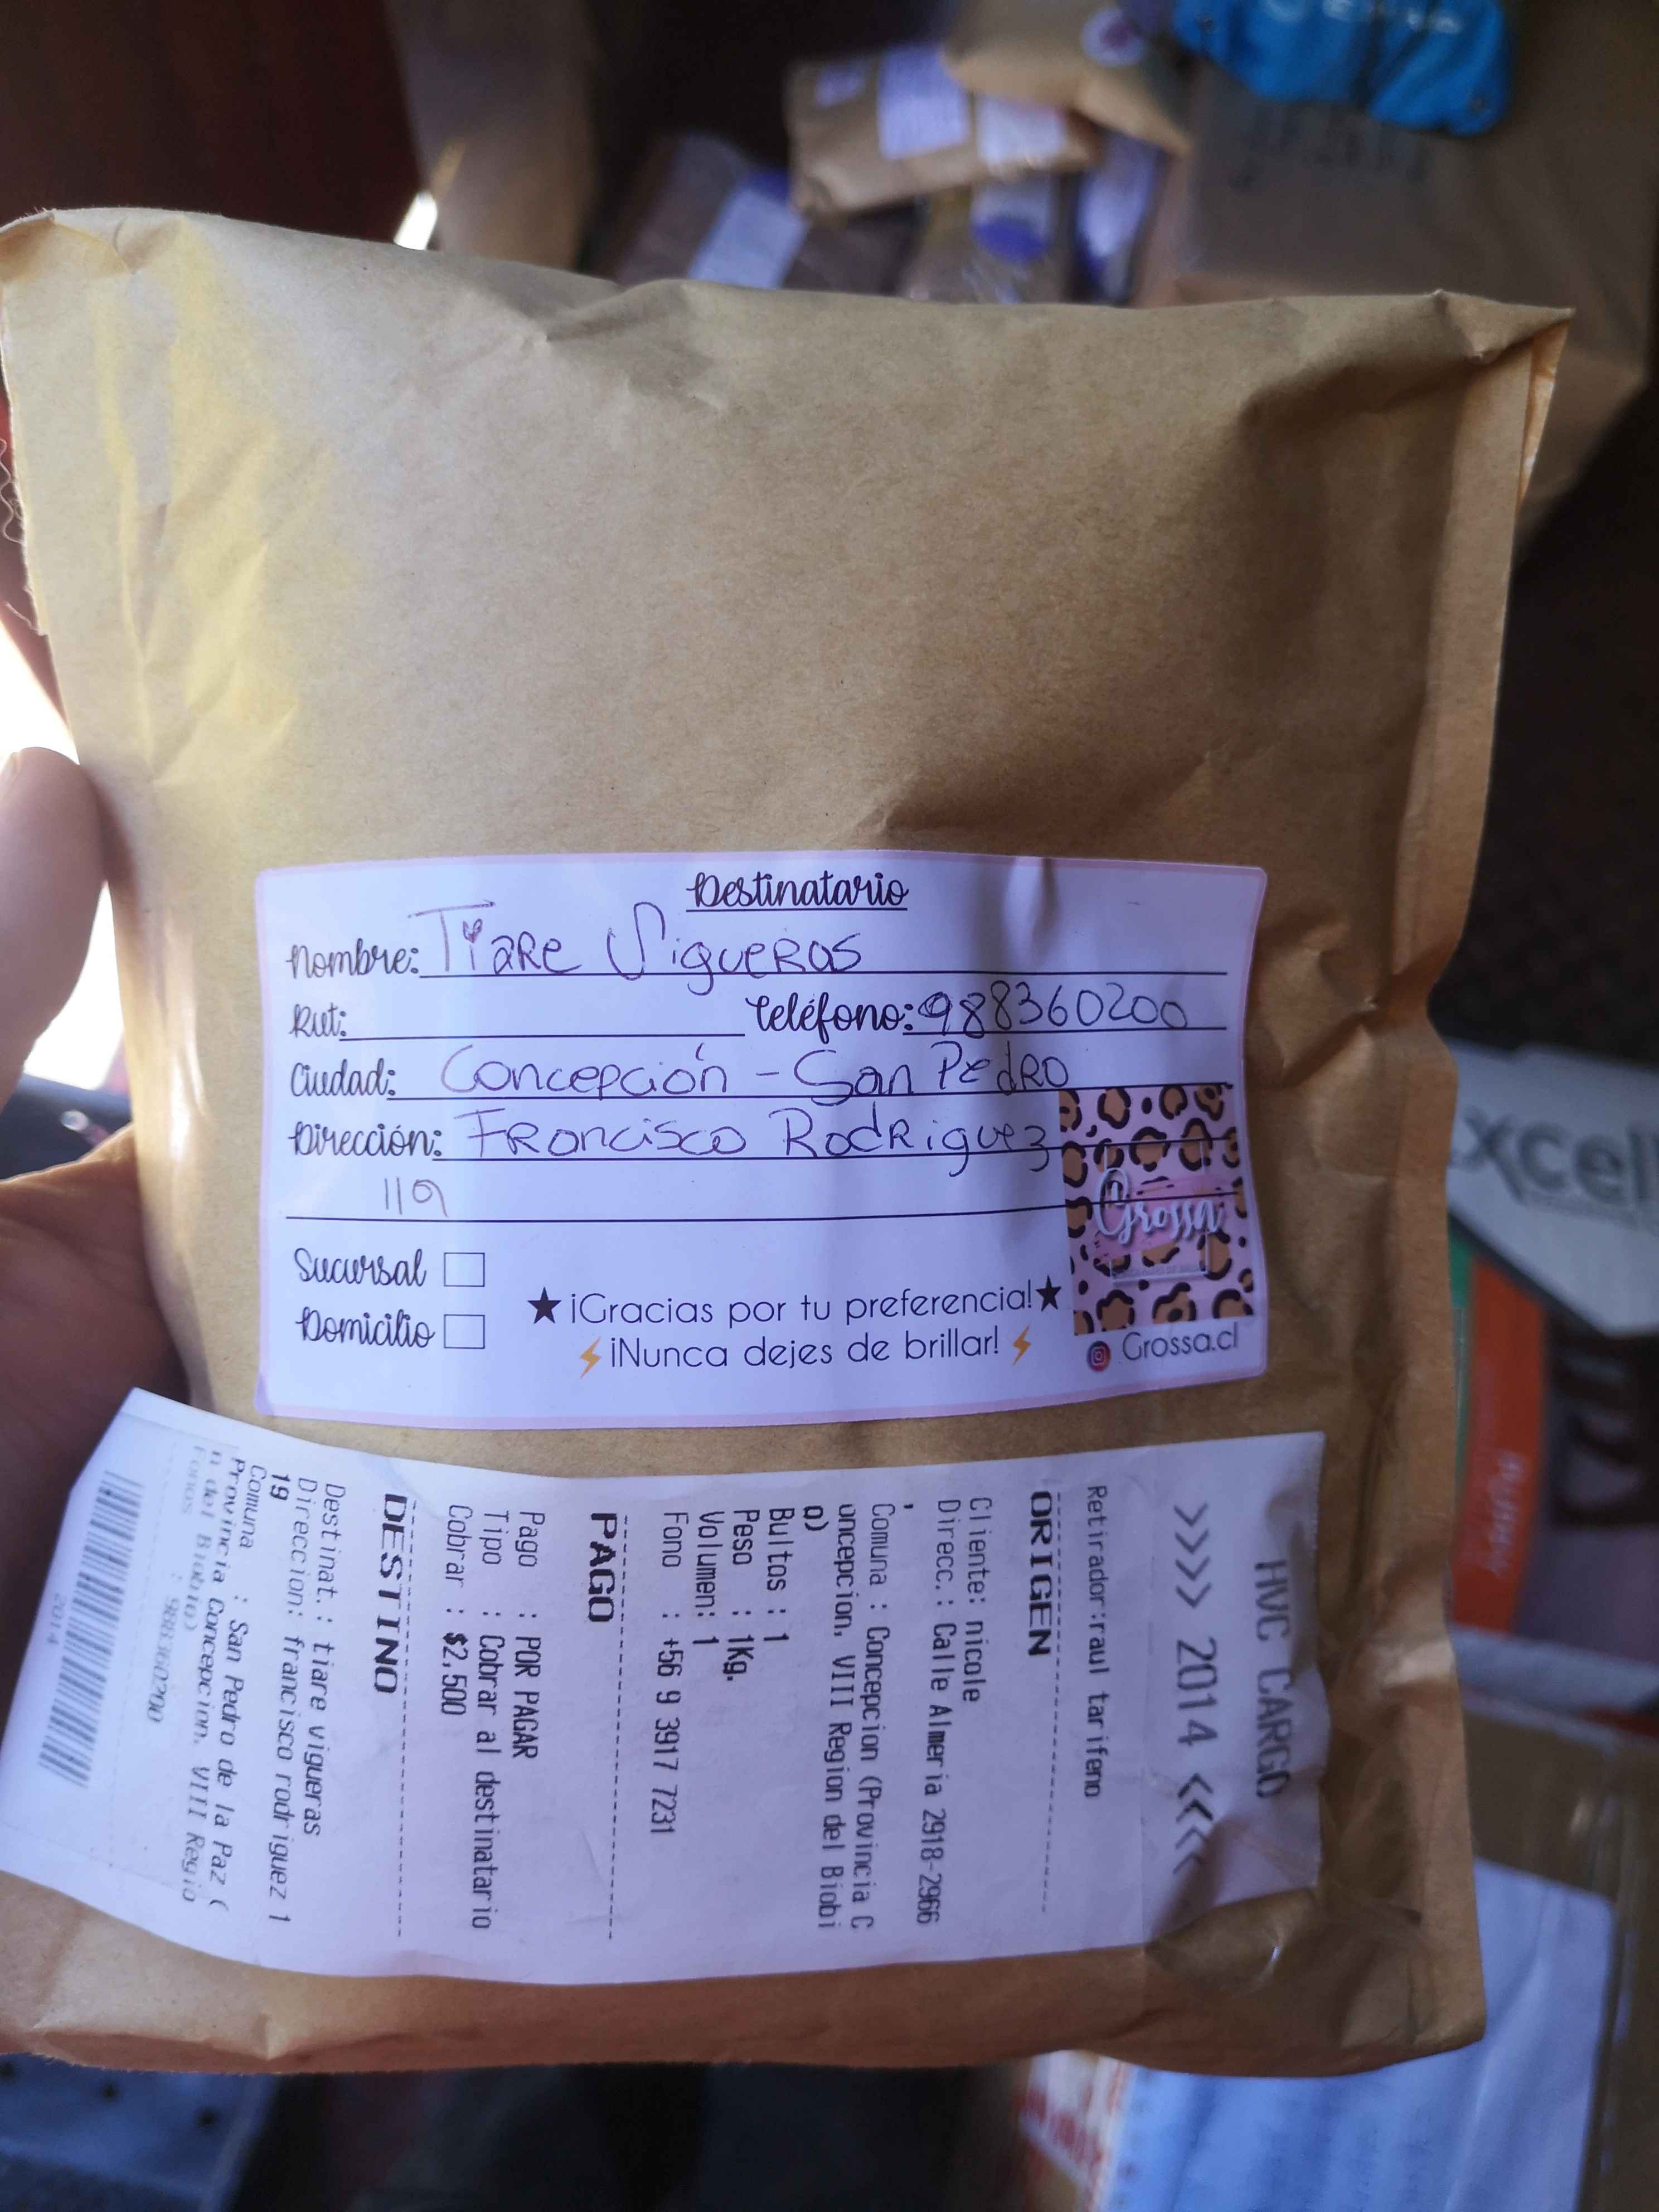 Destinatario
Nombre: Tiare Vigueras
Rut: Teléfono: 988360200
Ciudad: Concepción - San Pedro
Dirección: Francisco Rodriguez
119
Sucursal
Domicilio
★ ¡Gracias por tu preferencia! ★
⚡ ¡Nunca dejes de brillar! ⚡
Grossa
Grossa.cl
HVC CARGO
>>>> 2014 <<<<
Retirador:raul tarifeno
ORIGEN
Cliente: nicole
Direcc.: Calle Almeria 2918-2966
,
Comuna : Concepcion (Provincia C
oncepcion, VIII Region del Biobi
o)
Bultos : 1
Peso : 1Kg.
Volumen: 1
Fono : +56 9 3917 7231
PAGO
Pago : POR PAGAR
Tipo : Cobrar al destinatario
Cobrar : $2,500
DESTINO
Destinat.: tiare vigueras
Direccion: francisco rodriguez 1
19
Comuna : San Pedro de la Paz (
Provincia Concepcion, VIII Regio
n del Biobio)
Fonos : 988360200
2014
xcel